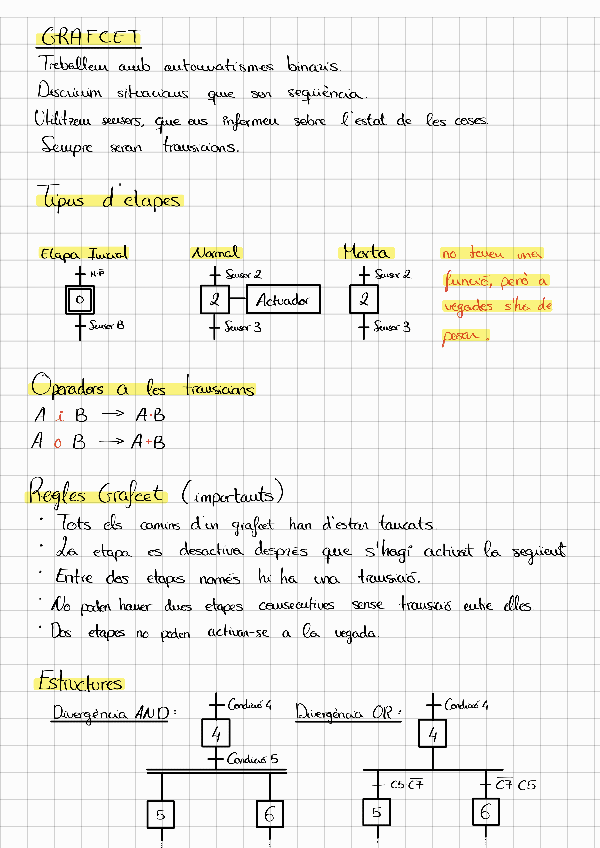 GRAFCET
Treballem amb automatismes binaris.
Descrivim situacions que son seqüència.
Utilitzem sensors, que ens informen sobre l'estat de les coses.
Sempre seran transicions.
Tipus d'etapes
Etapa Inicial Normal Morta
no tenen una
funció, però a
vegades s'ha de
posar.
N.F Sensor 2 Sensor 2
0 2 Actuador 2
Sensor B Sensor 3 Sensor 3
Operadors a les transicions
A i B → A·B
A o B → A+B
Regles Grafcet (importants)
· Tots els camins d'un grafcet han d'estar tancats.
· La etapa es desactiva després que s'hagi activat la següent
· Entre dos etapes només hi ha una transició.
· No poden haver dues etapes consecutives sense transició entre elles
· Dos etapes no poden activar-se a la vegada.
Estructures
Divergència AND: Condició 4 Divergència OR: Condició 4
4 4
Condició 5
C5 C̅7̅ C̅7̅ C5
5 6 5 6